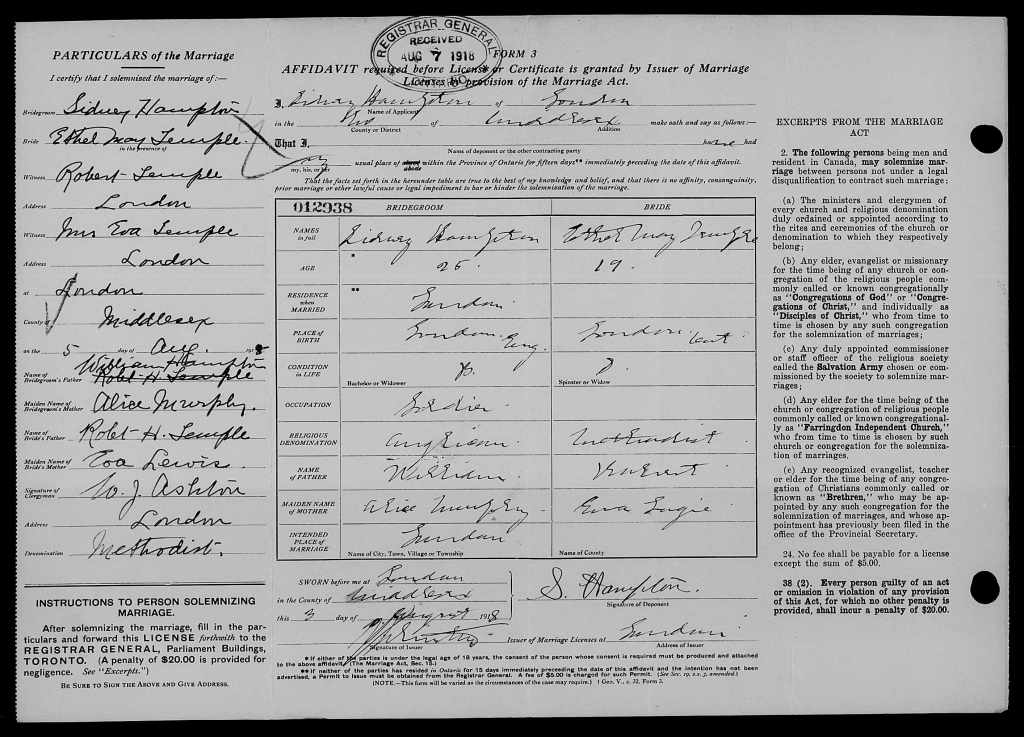 PARTICULARS of the Marriage
I certify that I solemnized the marriage of:—
Bridegroom Sidney Hampton
Bride Ethel May Temple.
in the presence of
Witness Robert Temple
Address London
Witness Mrs Eva Temple
Address London
at London
County of Middlesex
on the 5 day of Aug. 1918
William Hampton
Name of Bridegroom's Father Robt H. Temple
Maiden Name of Bridegroom's Mother Alice Murphy.
Name of Bride's Father Robt. H. Temple
Maiden Name of Bride's Mother Eva Lewis.
Signature of Clergyman W. J. Ashton
Address London
Denomination Methodist.
INSTRUCTIONS TO PERSON SOLEMNIZING
MARRIAGE.
After solemnizing the marriage, fill in the par-
ticulars and forward this LICENSE forthwith to the
REGISTRAR GENERAL, Parliament Buildings,
TORONTO. (A penalty of $20.00 is provided for
negligence. See "Excerpts.")
BE SURE TO SIGN THE ABOVE AND GIVE ADDRESS.
REGISTRAR GENERAL
RECEIVED
AUG 7 1918
ONTARIO
FORM 3
AFFIDAVIT required before License or Certificate is granted by Issuer of Marriage
Licenses by provision of the Marriage Act.
I, Sidney Hampton of London
Name of Applicant
in the of Middlesex make oath and say as follows:—
County or District Addition
That I, have had
Name of deponent or the other contracting party
my usual place of abode within the Province of Ontario for fifteen days** immediately preceding the date of this affidavit.
my, his, or her abode
That the facts set forth in the hereunder table are true to the best of my knowledge and belief, and that there is no affinity, consanguinity,
prior marriage or other lawful cause or legal impediment to bar or hinder the solemnization of the marriage.
012938 BRIDEGROOM BRIDE
NAMES in full Sidney Hampton Ethel May Temple
AGE * 26. 19.
RESIDENCE when MARRIED ** London
PLACE of BIRTH London. Eng. London Ont
CONDITION in LIFE B.
Bachelor or Widower Spinster or Widow
OCCUPATION Soldier
RELIGIOUS DENOMINATION Anglican. Methodist
NAME of FATHER William Robert
MAIDEN NAME of MOTHER Alice Murphy. Eva
INTENDED PLACE of MARRIAGE London
Name of City, Town, Village or Township Name of County
SWORN before me at London
in the County of Middlesex
this 3 day of August 1918
Signature of Issuer
S. Hampton.
Signature of Deponent
Issuer of Marriage Licenses at London
Address of Issuer
* If either of the parties is under the legal age of 18 years, the consent of the person whose consent is required must be produced and attached
to the above affidavit. (The Marriage Act, Sec. 15.)
** If neither of the parties has resided in Ontario for 15 days immediately preceding the date of this affidavit and the intention has not been
advertised, a Permit to Issue must be obtained from the Registrar General. A fee of $5.00 is charged for such Permit. (See Sec. 19, s.s. 3, amended.)
(NOTE.—This form will be varied as the circumstances of the case may require.) 1 Geo. V., c. 32, Form 3.
EXCERPTS FROM THE MARRIAGE
ACT
2. The following persons being men and
resident in Canada, may solemnize mar-
riage between persons not under a legal
disqualification to contract such marriage:
(a) The ministers and clergymen of
every church and religious denomination
duly ordained or appointed according to
the rites and ceremonies of the church or
denomination to which they respectively
belong;
(b) Any elder, evangelist or missionary
for the time being of any church or con-
gregation of the religious people com-
monly called or known congregationally
as "Congregations of God" or "Congre-
gations of Christ," and individually as
"Disciples of Christ," who from time to
time is chosen by any such congregation
for the solemnization of marriages;
(c) Any duly appointed commissioner
or staff officer of the religious society
called the Salvation Army chosen or com-
missioned by the society to solemnize mar-
riages;
(d) Any elder for the time being of the
church or congregation of religious people
commonly called or known congregational-
ly as "Farringdon Independent Church,"
who from time to time is chosen by such
church or congregation for the solemniza-
tion of marriages.
(e) Any recognized evangelist, teacher
or elder for the time being of any congre-
gation of Christians commonly called or
known as "Brethren," who may be ap-
pointed by any such congregation for the
solemnization of marriages, and whose ap-
pointment has previously been filed in the
office of the Provincial Secretary.
24. No fee shall be payable for a license
except the sum of $5.00.
38 (2). Every person guilty of an act
or omission in violation of any provision
of this Act, for which no other penalty is
provided, shall incur a penalty of $20.00.